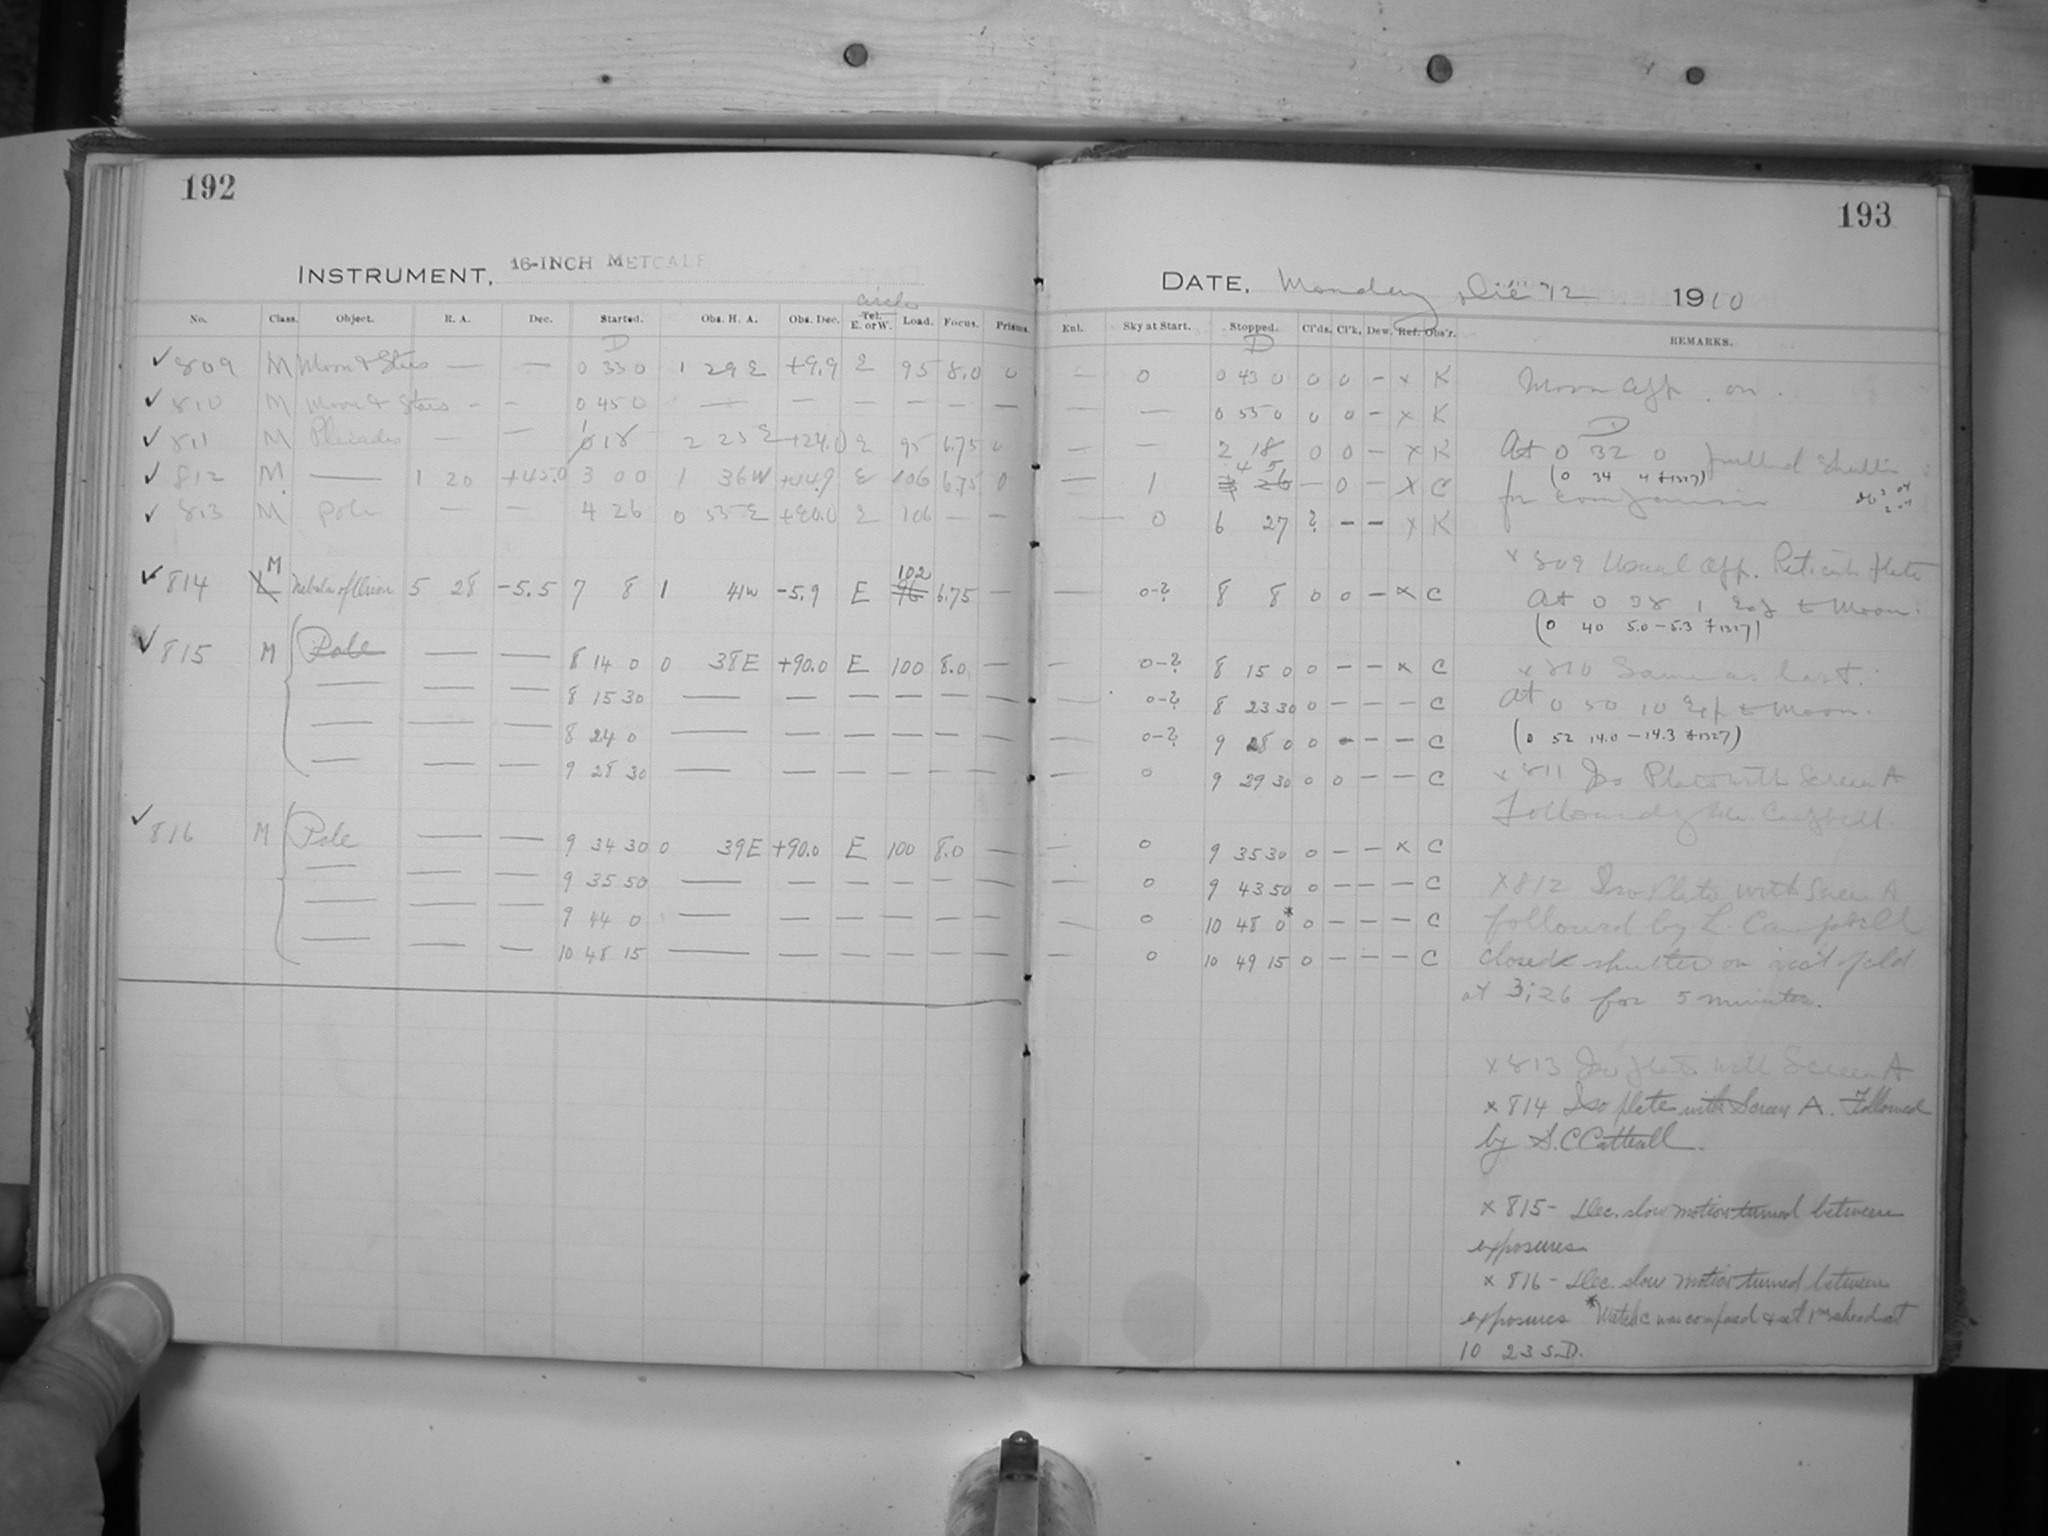 192
INSTRUMENT, 16-INCH METCALF
circle
No. Class. Object. R. A. Dec. Started. Obs. H. A. Obs. Dec. Tel. E. or W. Load. Focus. Prisms.
D
✓ 809 M Moon & Stars — — 0 33 0 1 29 E +9.9 E 95 8.0 0
✓ 810 M Moon & Stars - - 0 45 0 — — — — — —
✓ 811 M Pleiades — — 1 18 2 23 E +24.0 E 95 6.75 0
✓ 812 M — 1 20 +45.0 3 00 1 36W +44.9 E 106 6.75 0
✓ 813 M Pole — — 4 26 0 55 E +90.0 E 106 — —
✓ 814 M Nebula of Orion 5 28 -5.5 7 8 1 41W -5.9 E 102 6.75 —
✓ 815 M Pole — — 8 14 0 0 38E +90.0 E 100 8.0 —
— — — 8 15 30 — — — — — —
— — — 8 24 0 — — — — — —
— — — 9 28 30 — — — — — —
✓ 816 M Pole — — 9 34 30 0 39E +90.0 E 100 8.0 —
— — — 9 35 50 — — — — — —
— — — 9 44 0 — — — — — —
— — — 10 48 15 — — — — — —
193
DATE, Monday Dec 12 1910
Enl. Sky at Start. Stopped. Cl'ds. Cl'k. Dew. Ref. Obs'r. REMARKS.
D
— 0 0 43 0 0 0 – x K
— — 0 55 0 0 0 – x K
— — 2 18 0 0 – x K
— 1 4 5 — 0 – x C
— 0 6 27 ? – – x K
— 0-? 8 8 0 0 – x C
— 0-? 8 15 0 0 – – x C
— 0-? 8 23 30 0 – – – C
— 0-? 9 28 0 0 – – – C
— 0 9 29 30 0 0 – – C
— 0 9 35 30 0 – – x C
— 0 9 43 50 0 – – – C
— 0 10 48 0* 0 – – – C
— 0 10 49 15 0 – – – C
Moon app. on.
D
At 0 32 0 shutter
for comparison
x 809 Usual app. Reticule plate
At 0 38 1 Exp to Moon.
(0 40 5.0 – 5.3 +1327)
x 810 Same as last.
At 0 50 10 Exp to Moon.
(0 52 14.0 – 14.3 +1327)
x 811 Iso Plate with Screen A
Followed by Mr. Campbell
x 812 Iso Plate with Screen A
followed by L. Campbell
closed shutter on acc't of cld
at 3;26 for 5 minutes.
x 813 Iso plate with Screen A
x 814 Iso plate with Screen A. Followed
by
x 815 – Dec. slow motion turned between
exposures
x 816 – Dec. slow motion turned between
exposures *Watch C was compared & set 1m ahead at
10 23 S.D.